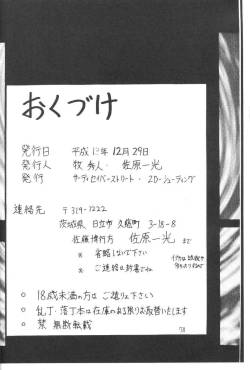 おくづけ
発行日 平成13年12月29日
発行人 牧 秀人・佐原一光
発行 サーディセイバーストリート・2Dシューティング
連絡先 〒319-1222
茨城県 日立市 久慈町 3-18-8
佐藤博行方 佐原一光 まで
※ 省略しないで下さい
※ ご連絡は封書でね
○ 18歳未満の方は ご遠りょ下さい
○ 乱丁・落丁本は在庫のある限りお取替いたします
○ 禁 無断転載
78